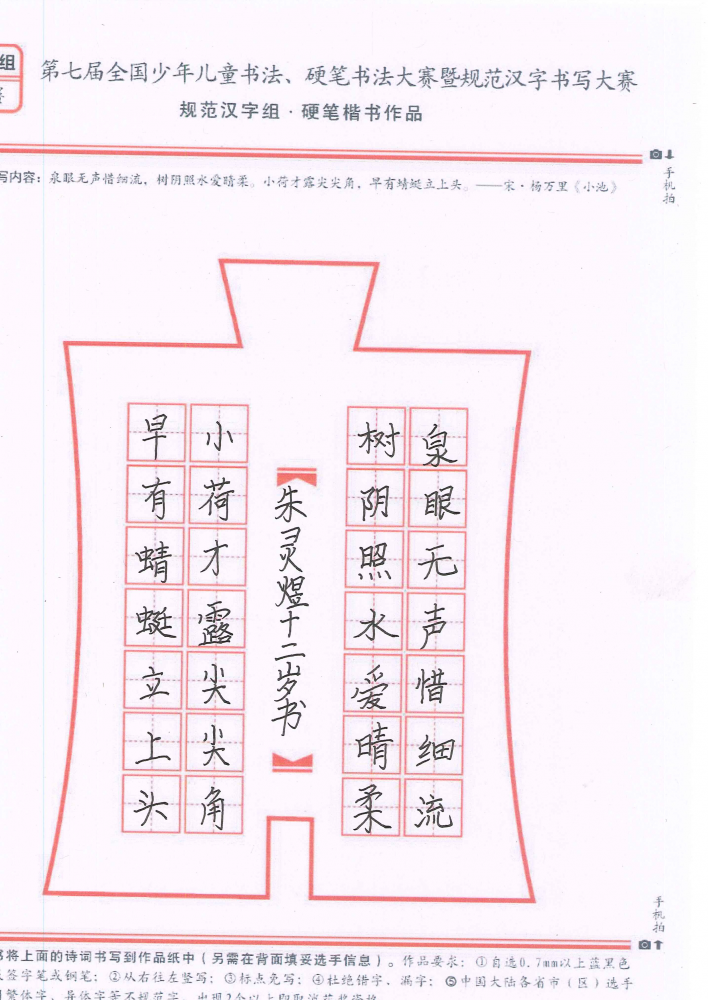 组
第七届全国少年儿童书法、硬笔书法大赛暨规范汉字书写大赛
规范汉字组·硬笔楷书作品
手机拍
写内容：泉眼无声惜细流，树阴照水爱晴柔。小荷才露尖尖角，早有蜻蜓立上头。——宋·杨万里《小池》
泉眼无声惜细流
树阴照水爱晴柔
朱灵煜十二岁书
小荷才露尖尖角
早有蜻蜓立上头
手机拍
将上面的诗词书写到作品纸中（另需在背面填妥选手信息）。作品要求：①自选0.7mm以上蓝黑色
签字笔或钢笔；②从右往左竖写；③标点免写；④杜绝错字、漏字；⑤中国大陆各省市（区）选手
繁体字、异体字等不规范字，出现2个以上即取消获奖资格